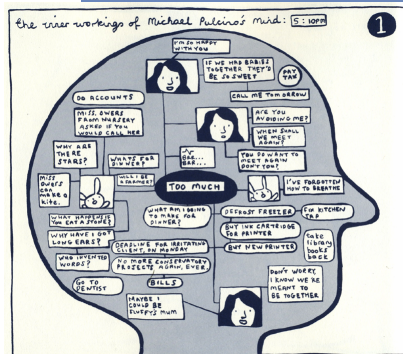 the inner workings of Michael Pulcino's mind: 5:10PM
1
I'M SO HAPPY
WITH YOU
IF WE HAD BABIES
TOGETHER THEY'D
BE SO SWEET
PAY
TAX
DO ACCOUNTS
CALL ME TOMORROW
MISS. OWERS
FROM NURSERY
ASKED IF YOU
WOULD CALL HER
ARE YOU
AVOIDING ME?
WHEN SHALL
WE MEET
AGAIN?
WHY ARE
THERE
STARS?
WHATS FOR
DINNER?
BEE...
BEE...
YOU DO WANT TO
MEET AGAIN
DON'T YOU?
MISS
OWERS
CAN
MAKE A
KITE.
WILL I BE
A FARMER?
TOO MUCH
I'VE FORGOTTEN
HOW TO BREATHE
WHAT HAPPENS IF
YOU EAT A STONE?
WHAT AM I GOING
TO MAKE FOR
DINNER?
DEFROST FREEZER
FIX KITCHEN
TAP
WHY HAVE I GOT
LONG EARS?
BUY INK CARTRIDGE
FOR PRINTER
DEADLINE FOR IRRITATING
CLIENT, ON MONDAY
BUY NEW PRINTER
take
library
books
back
WHO INVENTED
WORDS?
NO MORE CONSERVATORY
PROJECTS AGAIN, EVER.
GO TO
DENTIST
BILLS
DON'T WORRY,
I KNOW WE'RE
MEANT TO
BE TOGETHER
MAYBE I
COULD BE
FLUFFY'S MUM